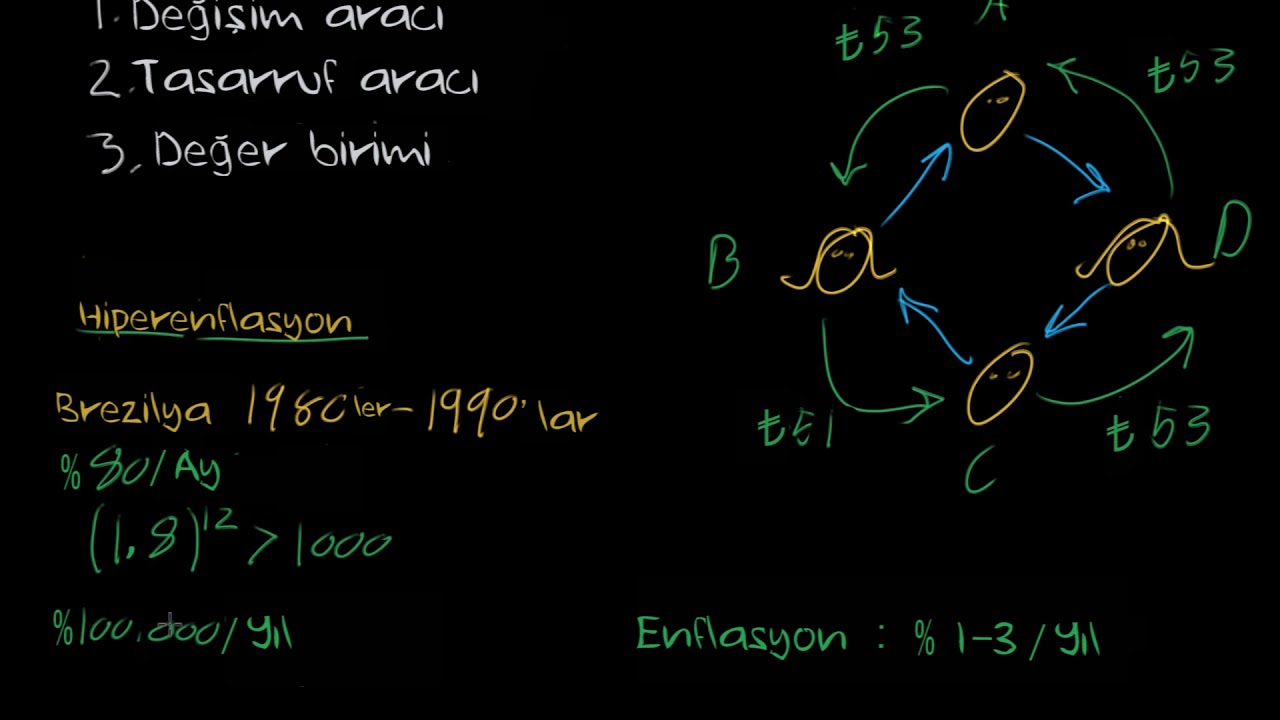 1. Değişim aracı
2. Tasarruf aracı
3. Değer birimi
Hiperenflasyon
Brezilya 1980ler-1990'lar
%80/Ay
(1,8)^12 > 1000
%100.000/yıl
A
₺53
₺53
B
D
₺51
₺53
C
Enflasyon : % 1-3/yıl